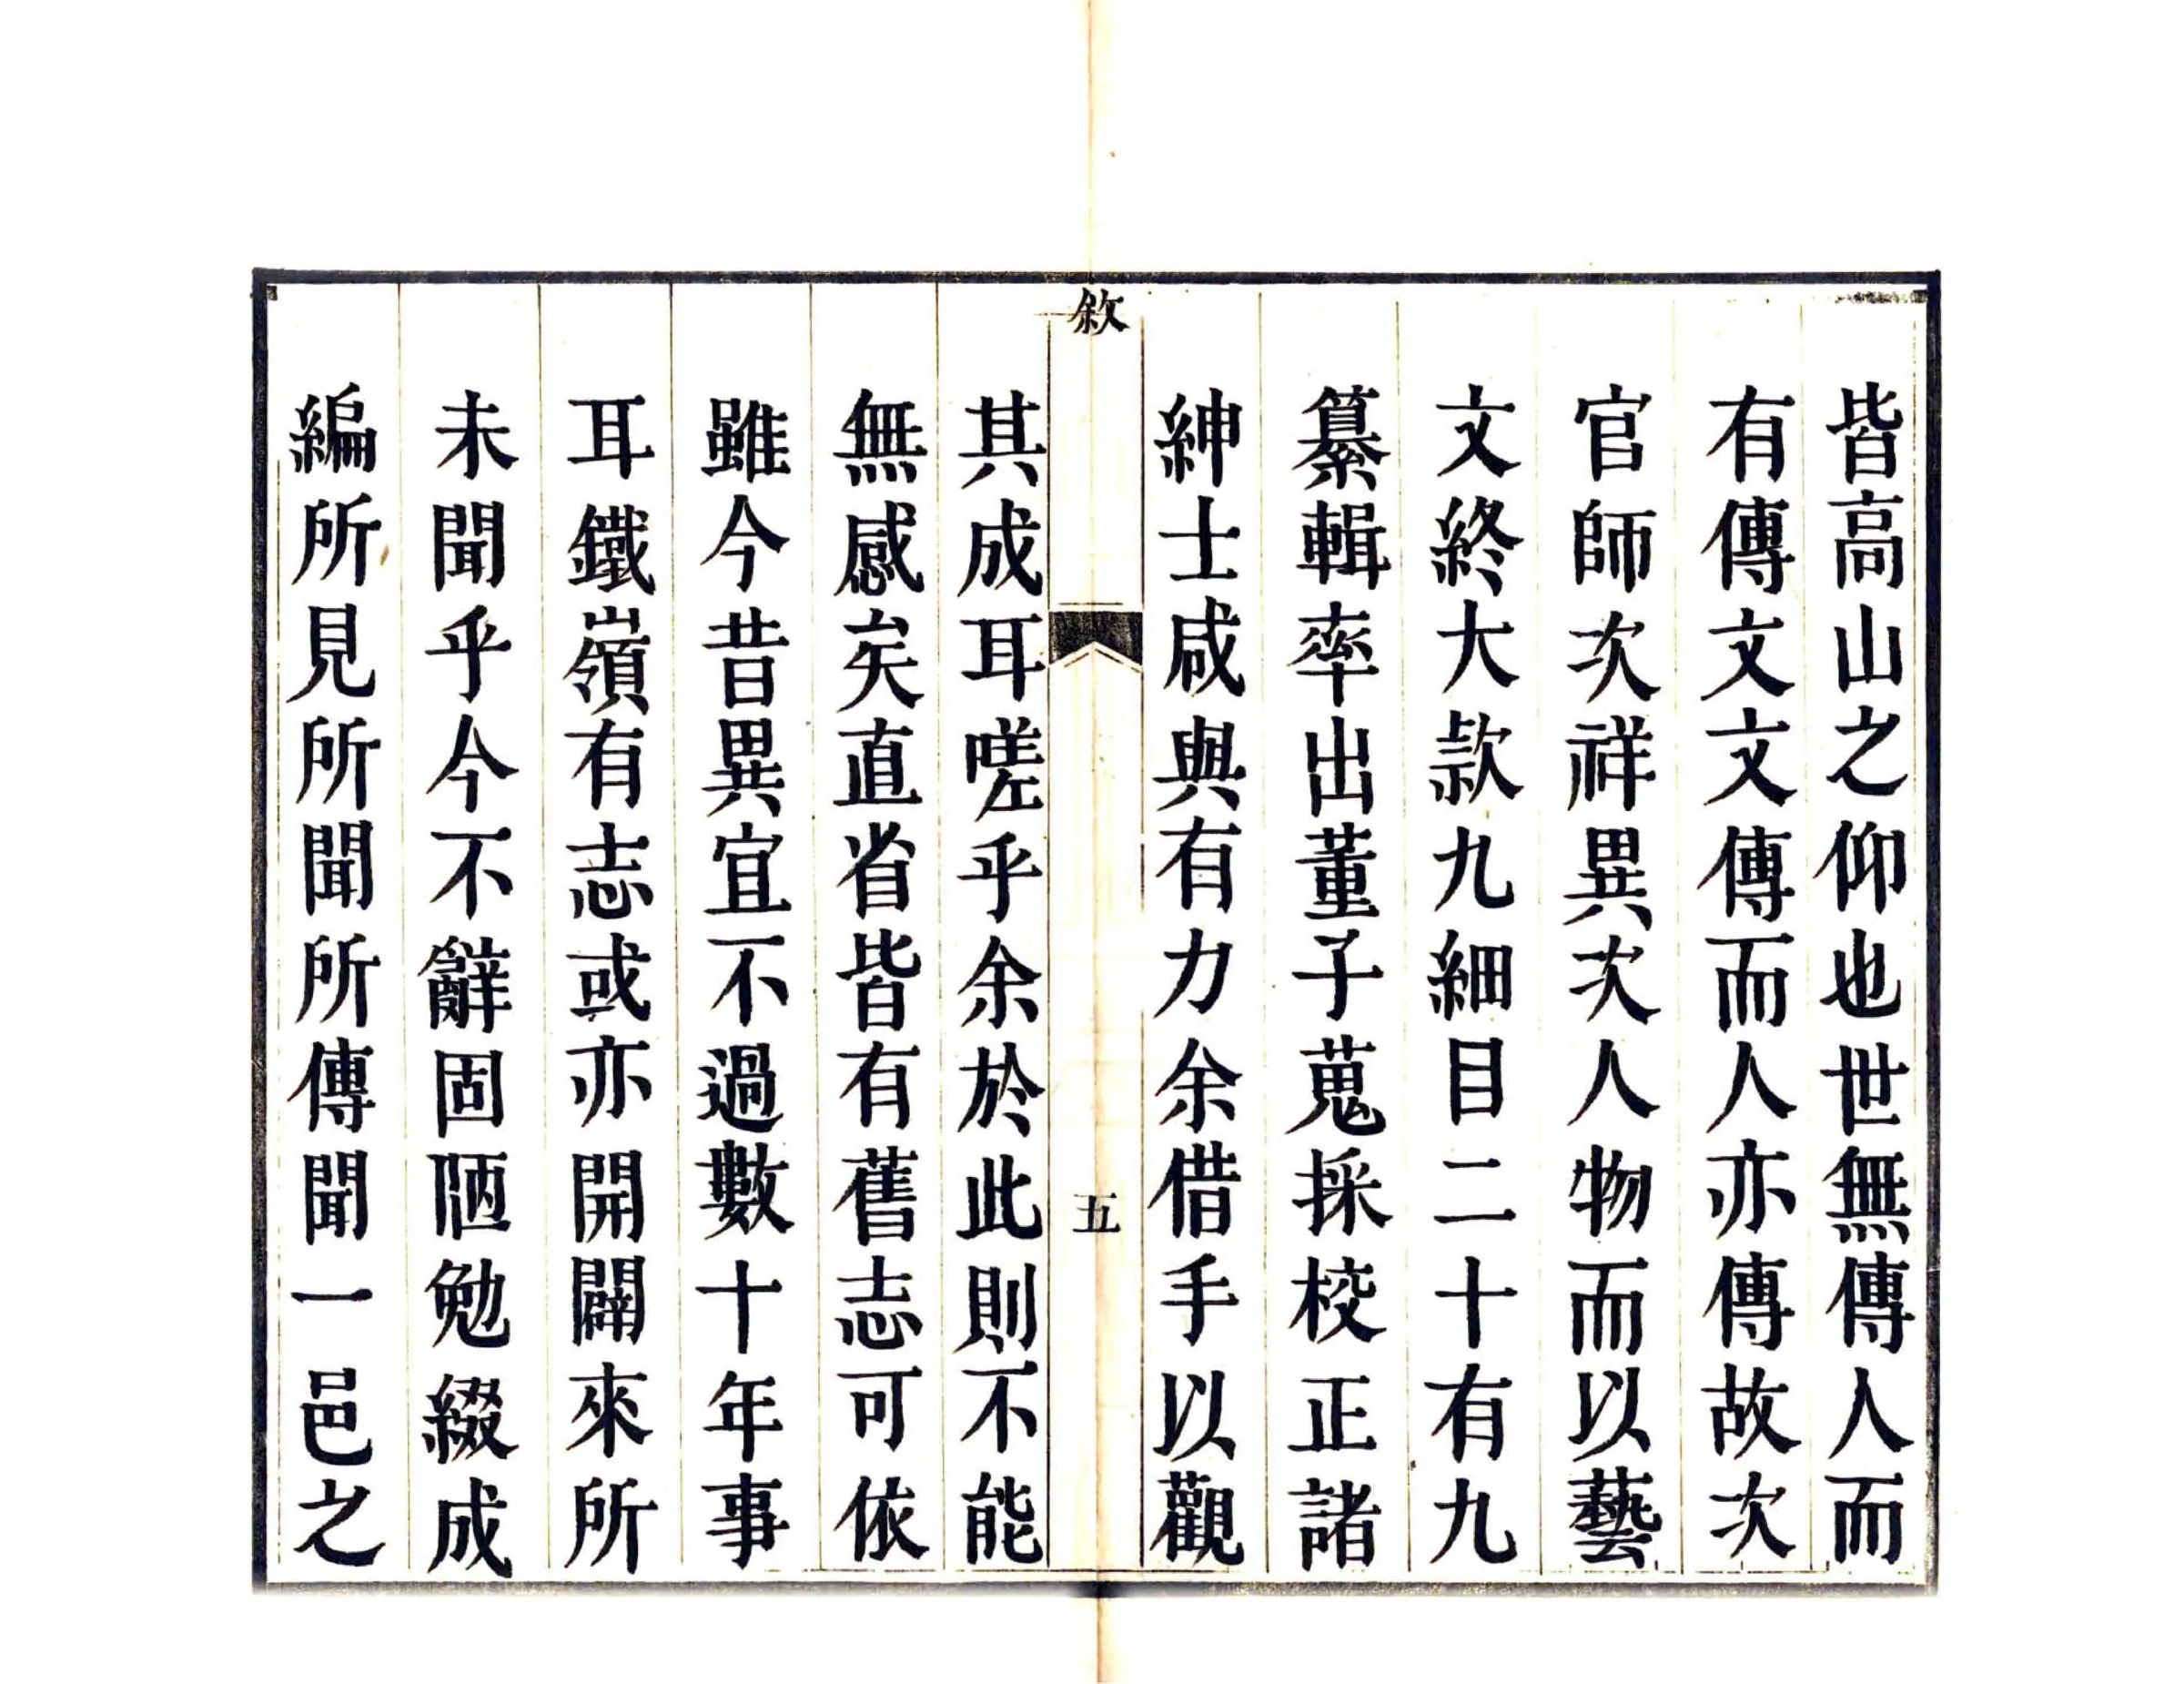 皆高山之仰也世無傳人而
有傳文文傳而人亦傳故次
官師次祥異次人物而以藝
文終大款九細目二十有九
纂輯率出董子蒐採校正諸
紳士咸與有力余借手以觀
敘
五
其成耳嗟乎余於此則不能
無感矣直省皆有舊志可依
雖今昔異宜不過數十年事
耳鐵嶺有志或亦開闢來所
未聞乎今不辭固陋勉綴成
編所見所聞所傳聞一邑之